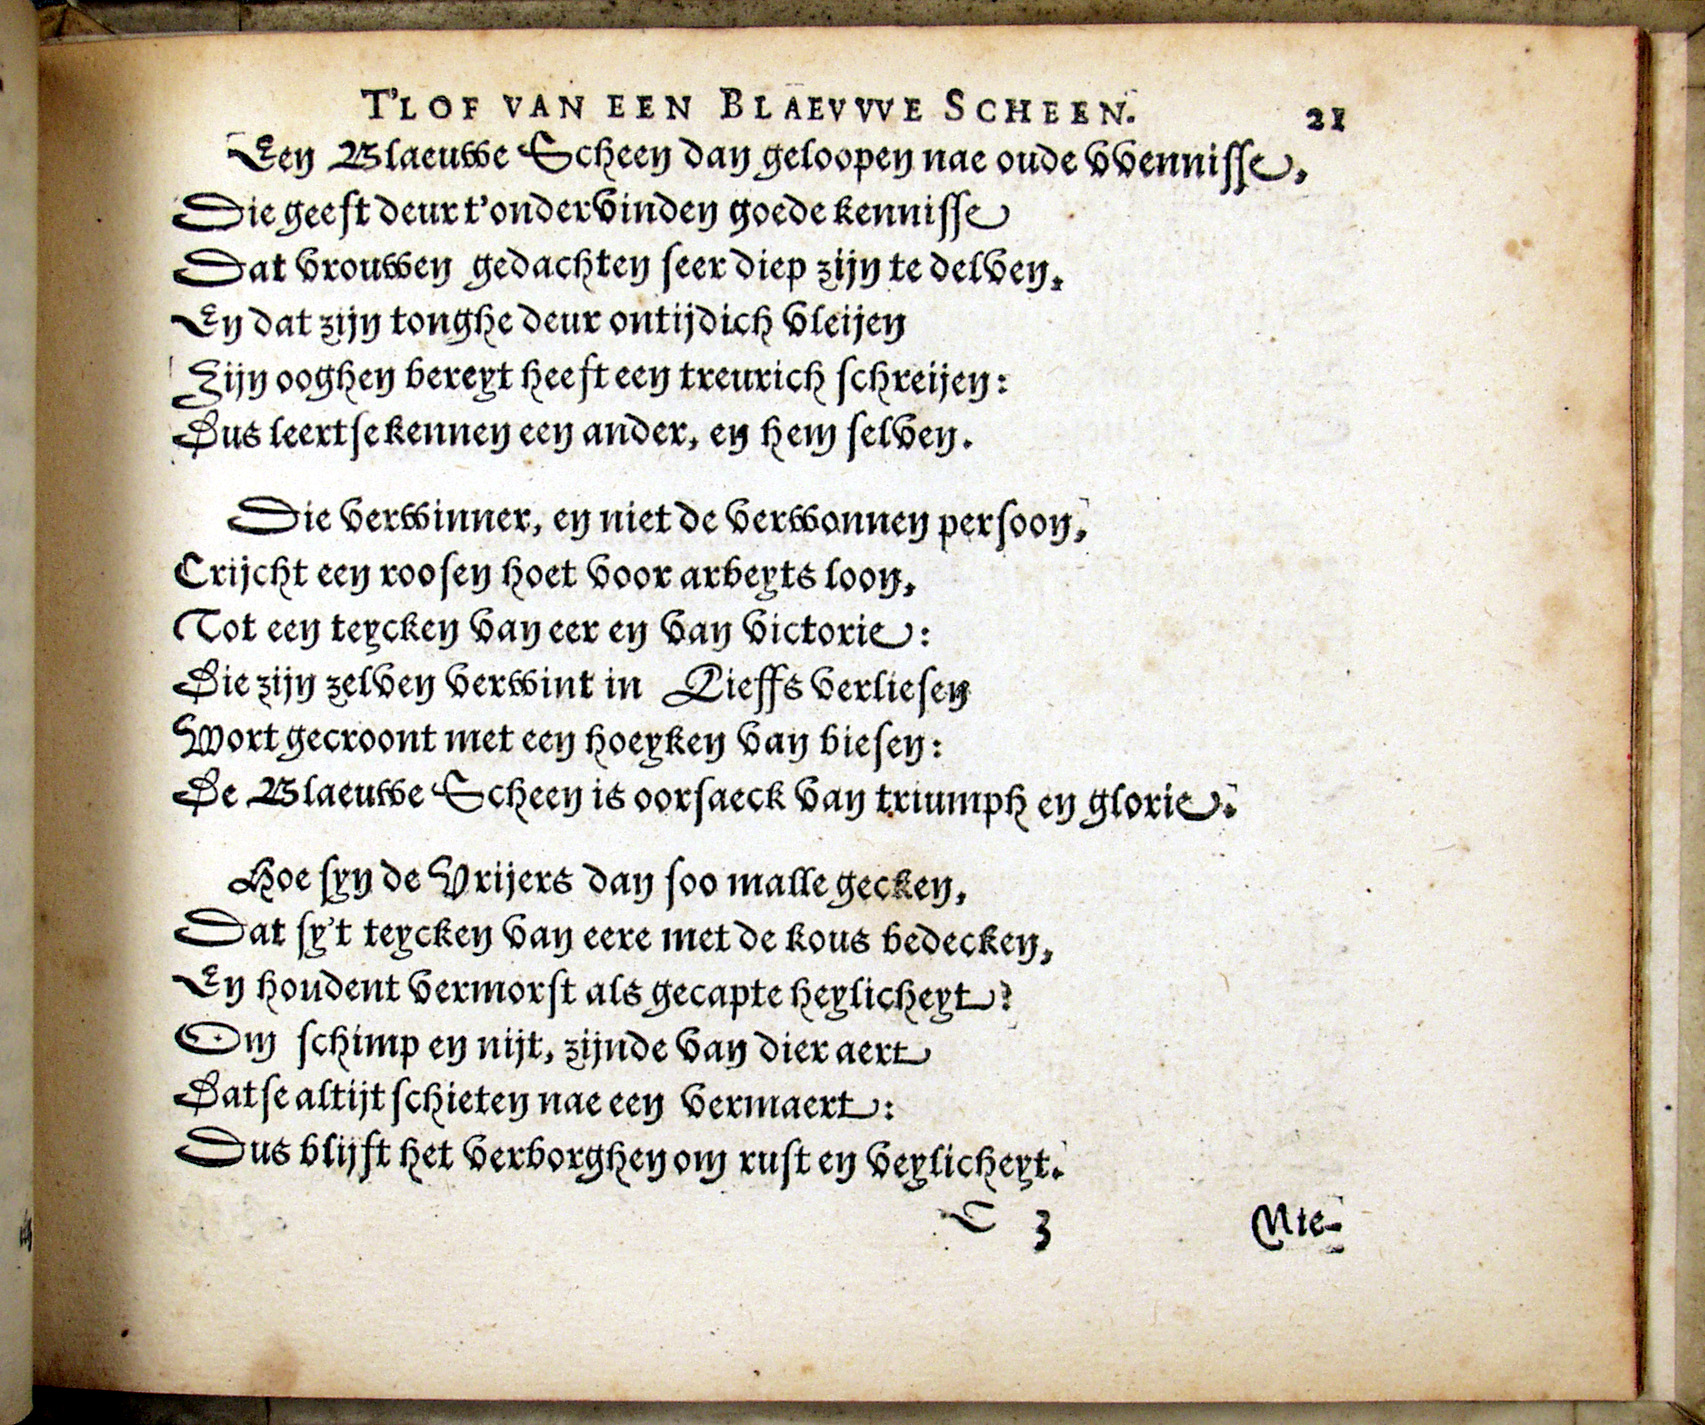 T'LOF VAN EEN BLAEVWE SCHEEN. 21
Een Blaeuwe Scheen dan geloopen nae oude VVennisse,
Die geeft deur t'ondervinden goede kennisse
Dat vrouwen gedachten seer diep zijn te delven,
En dat zijn tonghe deur ontijdich vleijen
Zijn ooghen bereyt heeft een treurich schreijen:
Dus leertse kennen een ander, en hem selven.
Die verwinner, en niet de verwonnen persoon,
Crijcht een roosen hoet voor arbeyts loon,
Tot een teycken van eer en van victorie:
Die zijn zelven verwint in Lieffs verliesen
Wort gecroont met een hoeyken van biesen:
De Blaeuwe Scheen is oorsaeck van triumph en glorie.
Hoe syn de Vrijers dan soo malle gecken,
Dat sy't teycken van eere met de kous bedecken,
En houdent vermorst als gecapte heylicheyt?
Om schimp en nijt, zijnde van dier aert
Datse altijt schieten nae een vermaert:
Dus blijft het verborghen om rust en veylicheyt.
C 3 Nie-